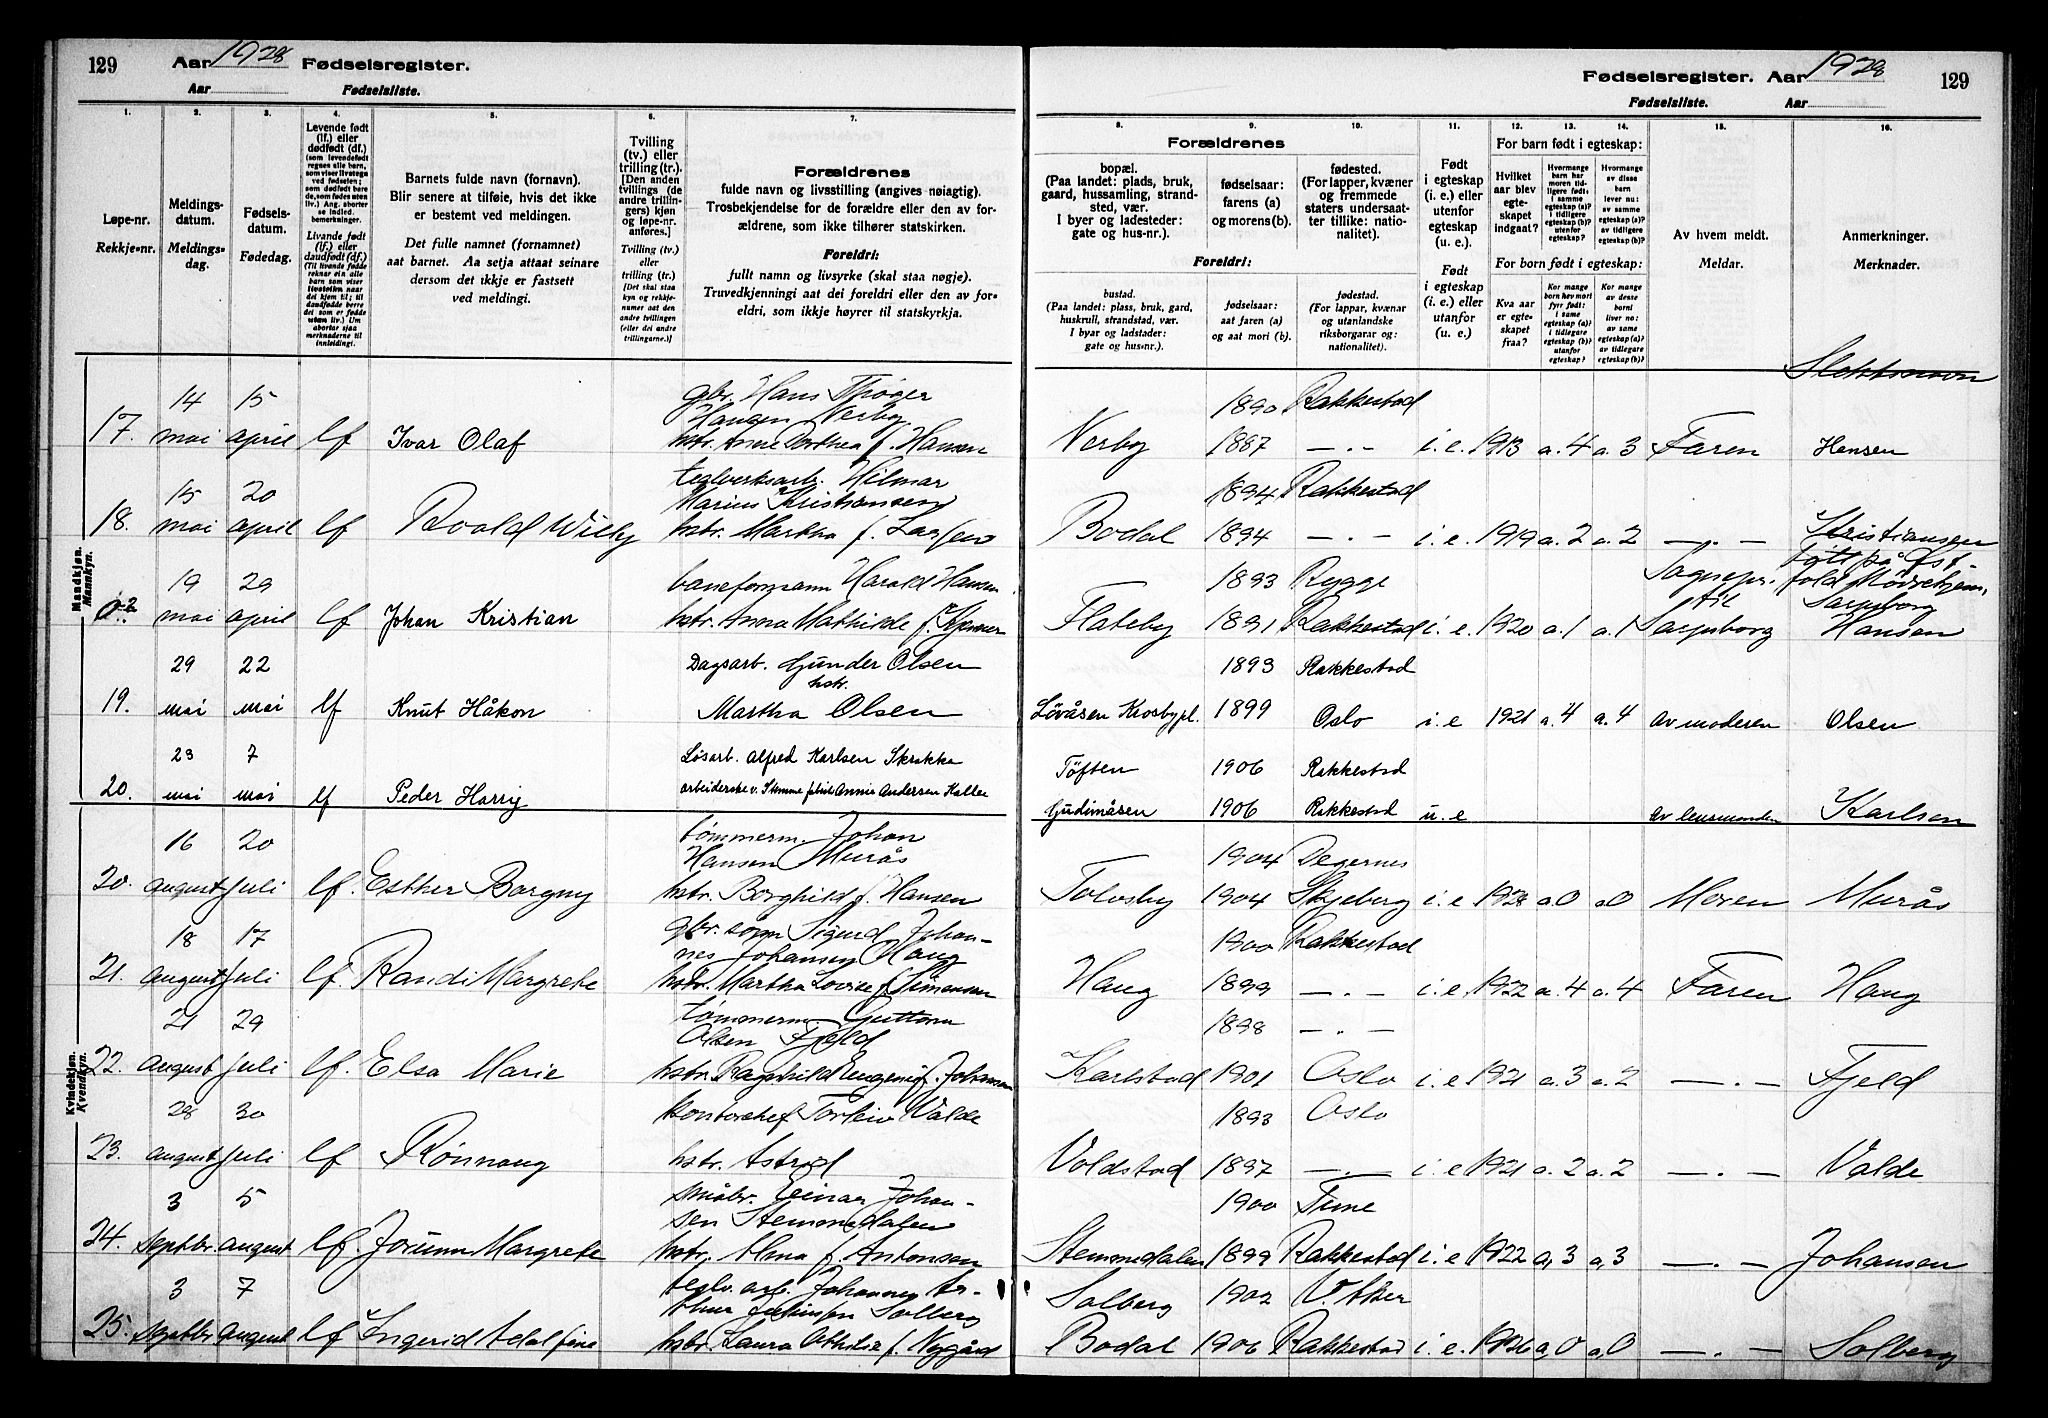 129 Aar 1928 Fødselsregister.
Aar Fødselsliste.
Fødselsregister. Aar 1928 129
Fødselsliste. Aar
1. 2. 3. 4. 5. 6. 7.
8. 9. 10. 11. 12. 13. 14. 15. 16.
Løpe-nr.
Rekkje-nr.
Meldings-
datum.
Meldings-
dag.
Fødsels-
datum.
Fødedag.
Levende født
(lf.) eller
dødfødt (df.)
Livande født
(lf.) eller
daudfødt (df.)
Barnets fulde navn (fornavn).
Blir senere at tilføie, hvis det ikke
er bestemt ved meldingen.
Det fulle namnet (fornamnet)
aat barnet. Aa setja attaat seinare
dersom det ikkje er fastsett
ved meldingi.
Tvilling
(tv.) eller
trilling (tr.).
[Den anden
tvillings (de
andre trillin-
gers) kjøn
og løpe-nr.
anføres.]
Tvilling (tv.)
eller
trilling (tr.)
Forældrenes
fulde navn og livsstilling (angives nøiagtig).
Trosbekjendelse for de forældre eller den av for-
ældrene, som ikke tilhører statskirken.
Foreldri:
fullt namn og livsyrke (skal staa nøgje).
Truvedkjenningi aat dei foreldri eller den av for-
eldri, som ikkje høyrer til statskyrkja.
Forældrenes
bopæl.
(Paa landet: plads, bruk,
gaard, hussamling, strand-
sted, vær.
I byer og ladesteder:
gate og hus-nr.).
fødselsaar:
farens (a)
og morens (b).
fødested.
(For lapper, kvæner
og fremmede
staters undersaat-
ter tillike: natio-
nalitet).
Foreldri:
bustad.
(Paa landet: plass, bruk, gard,
huskrull, strandstad, vær.
I byar og ladstader:
gate og hus-nr.).
fødselsaar:
aat faren (a)
og aat mori (b).
fødestad.
(For lappar, kvænar
og utanlandske
riksborgarar og:
nationalitet).
Født
i egteskap
(i. e.) eller
utenfor
egteskap
(u. e.).
Født
i egteskap
(i. e.) eller
utanfor
(u. e.).
For barn født i egteskap:
Hvilket
aar blev
egte-
skapet
indgaat?
For born født i egteskap:
Kva aar
er egte-
skapet
fraa?
Av hvem meldt.
Meldar.
Anmerkninger.
Merknader.
Mandkjøn.
Mannkyn.
Slektsnavn
14 15 gbr. Hans Thøger 1890 Rakkestad
Hansen Nerby
17. mai april lf Ivar Olaf hstr. Anne Dorthea f. Hansen Nerby 1887 — . — i. e. 1913 a. 4 a. 3 Faren Hansen
15 20 teglverksarb. Hilmar 1894 Rakkestad
Marius Kristiansen
18. mai april lf Roald Willy hstr. Martha f. Larsen Bodal 1894 — . — i. e. 1919 a. 2 a. 2 — . — Kristiansen
19 29 baneformann Harald Hansen 1893 Rygge Sognepr. født på Øst-
fold Mødrehjem,
til Sarpsborg
mai april lf Johan Kristian hstr. Anna Mathilde f. Flateby 1891 Rakkestad i. e. 1920 a. 1 a. 1 Sarpsborg Hansen
29 22 Dagsarb. Gunder Olsen 1893 Rakkestad
hstr.
19. mai mai lf Knut Håkon Martha Olsen Løvåsen Krosbypl. 1899 Oslo i. e 1921 a. 4 a. 4 Av moderen Olsen
23 7 Løsarb. Alfred Karlsen Skrakka Tøften 1906 Rakkestad
20. mai mai lf Peder Harry arbeiderske v. Stemme fabrik Annie Andersen Kallee Gudimåsen 1906 Rakkestad u. e Av lensmanden Karlsen
Kvindekjøn.
Kvendkyn.
16 20 tømmerm. Johan 1904 Degernes
Hansen Murås
20. august juli lf. Esther Borgny hstr. Borghild f. Hansen Tolvsby 1904 Skjeberg i. e 1928 a. 0 a. 0 Moren Murås
18 17 gbr. sønn Sigurd Johan- 1900 Rakkestad
nes Johansen Haug
21. august juli lf. Randi Margrete hstr. Martha Lovise f. Simensen Haug 1899 — . — i. e. 1922 a. 4 a. 4 Faren Haug
21 29 tømmerm. Guttorm 1898 — . —
Olsen Fjeld
22. august juli lf. Elsa Marie hstr. Ragnhild Eugenie f. Johansen Karlstad 1901 Oslo i. e 1921 a. 3 a. 2 — . — Fjeld
28 30 kontorchef Torleiv Valde 1893 Oslo
23. august juli lf Rønnaug hstr. Astrid Voldstad 1897 — . — i. e 1921 a. 2 a. 2 — . — Valde
3 5 småbr. Einar Johan- 1900 Tune
sen Stemmedalen
24. septbr. august lf. Jorunn Margrete hstr. Alma f. Antonsen Stemmedalen 1899 Rakkestad i. e 1922 a, 3 a, 3 — . — Johansen
3 7 teglv. arb. Johannes Ar- Solberg 1902 V. Aker
thur Solberg
25. septbr. august lf Ingerid Adolfine hstr. Laura Othilie f. Nygård Bodal 1906 Rakkestad i. e. 1926 a, 0 a, 0 — . — Solberg